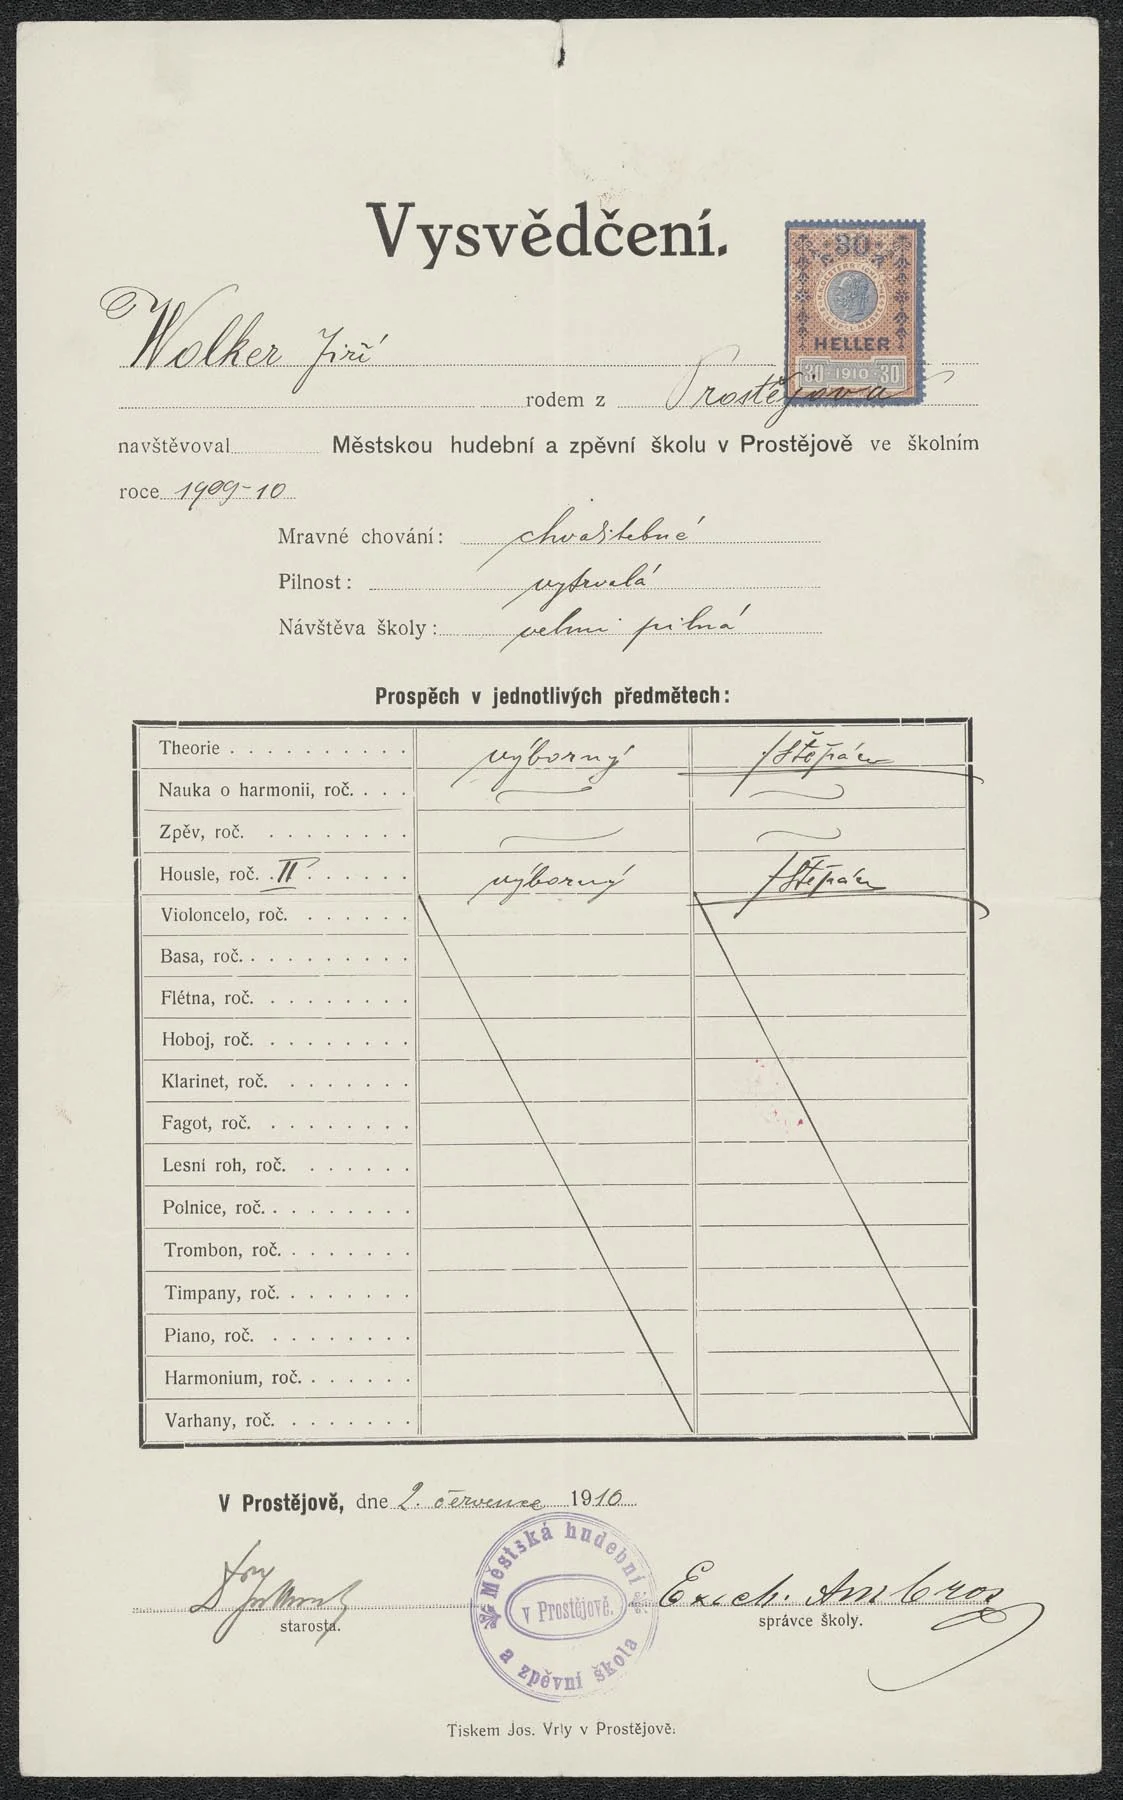 Vysvědčení.
30
HELLER
30 · 1910 · 30
Wolker Jiří
rodem z Prostějova
navštěvoval Městskou hudební a zpěvní školu v Prostějově ve školním
roce 1909-10
Mravné chování: chvalitebné
Pilnost: vytrvalá
Návštěva školy: velmi pilná
Prospěch v jednotlivých předmětech:
Theorie . . . . . . . . . . výborný Štěpán
Nauka o harmonii, roč. . . .
Zpěv, roč. . . . . . . . .
Housle, roč. . II . . . . . . výborný Štěpán
Violoncelo, roč. . . . . . .
Basa, roč. . . . . . . . . .
Flétna, roč. . . . . . . . .
Hoboj, roč. . . . . . . . .
Klarinet, roč. . . . . . . .
Fagot, roč. . . . . . . . .
Lesní roh, roč. . . . . . .
Polnice, roč. . . . . . . . .
Trombon, roč. . . . . . . .
Timpany, roč. . . . . . . .
Piano, roč. . . . . . . . .
Harmonium, roč. . . . . . .
Varhany, roč. . . . . . . .
V Prostějově, dne 2. července 1910
Městská hudební
v Prostějově.
a zpěvní škola
Ezech. Ambros
starosta.
správce školy.
Tiskem Jos. Vrly v Prostějově.